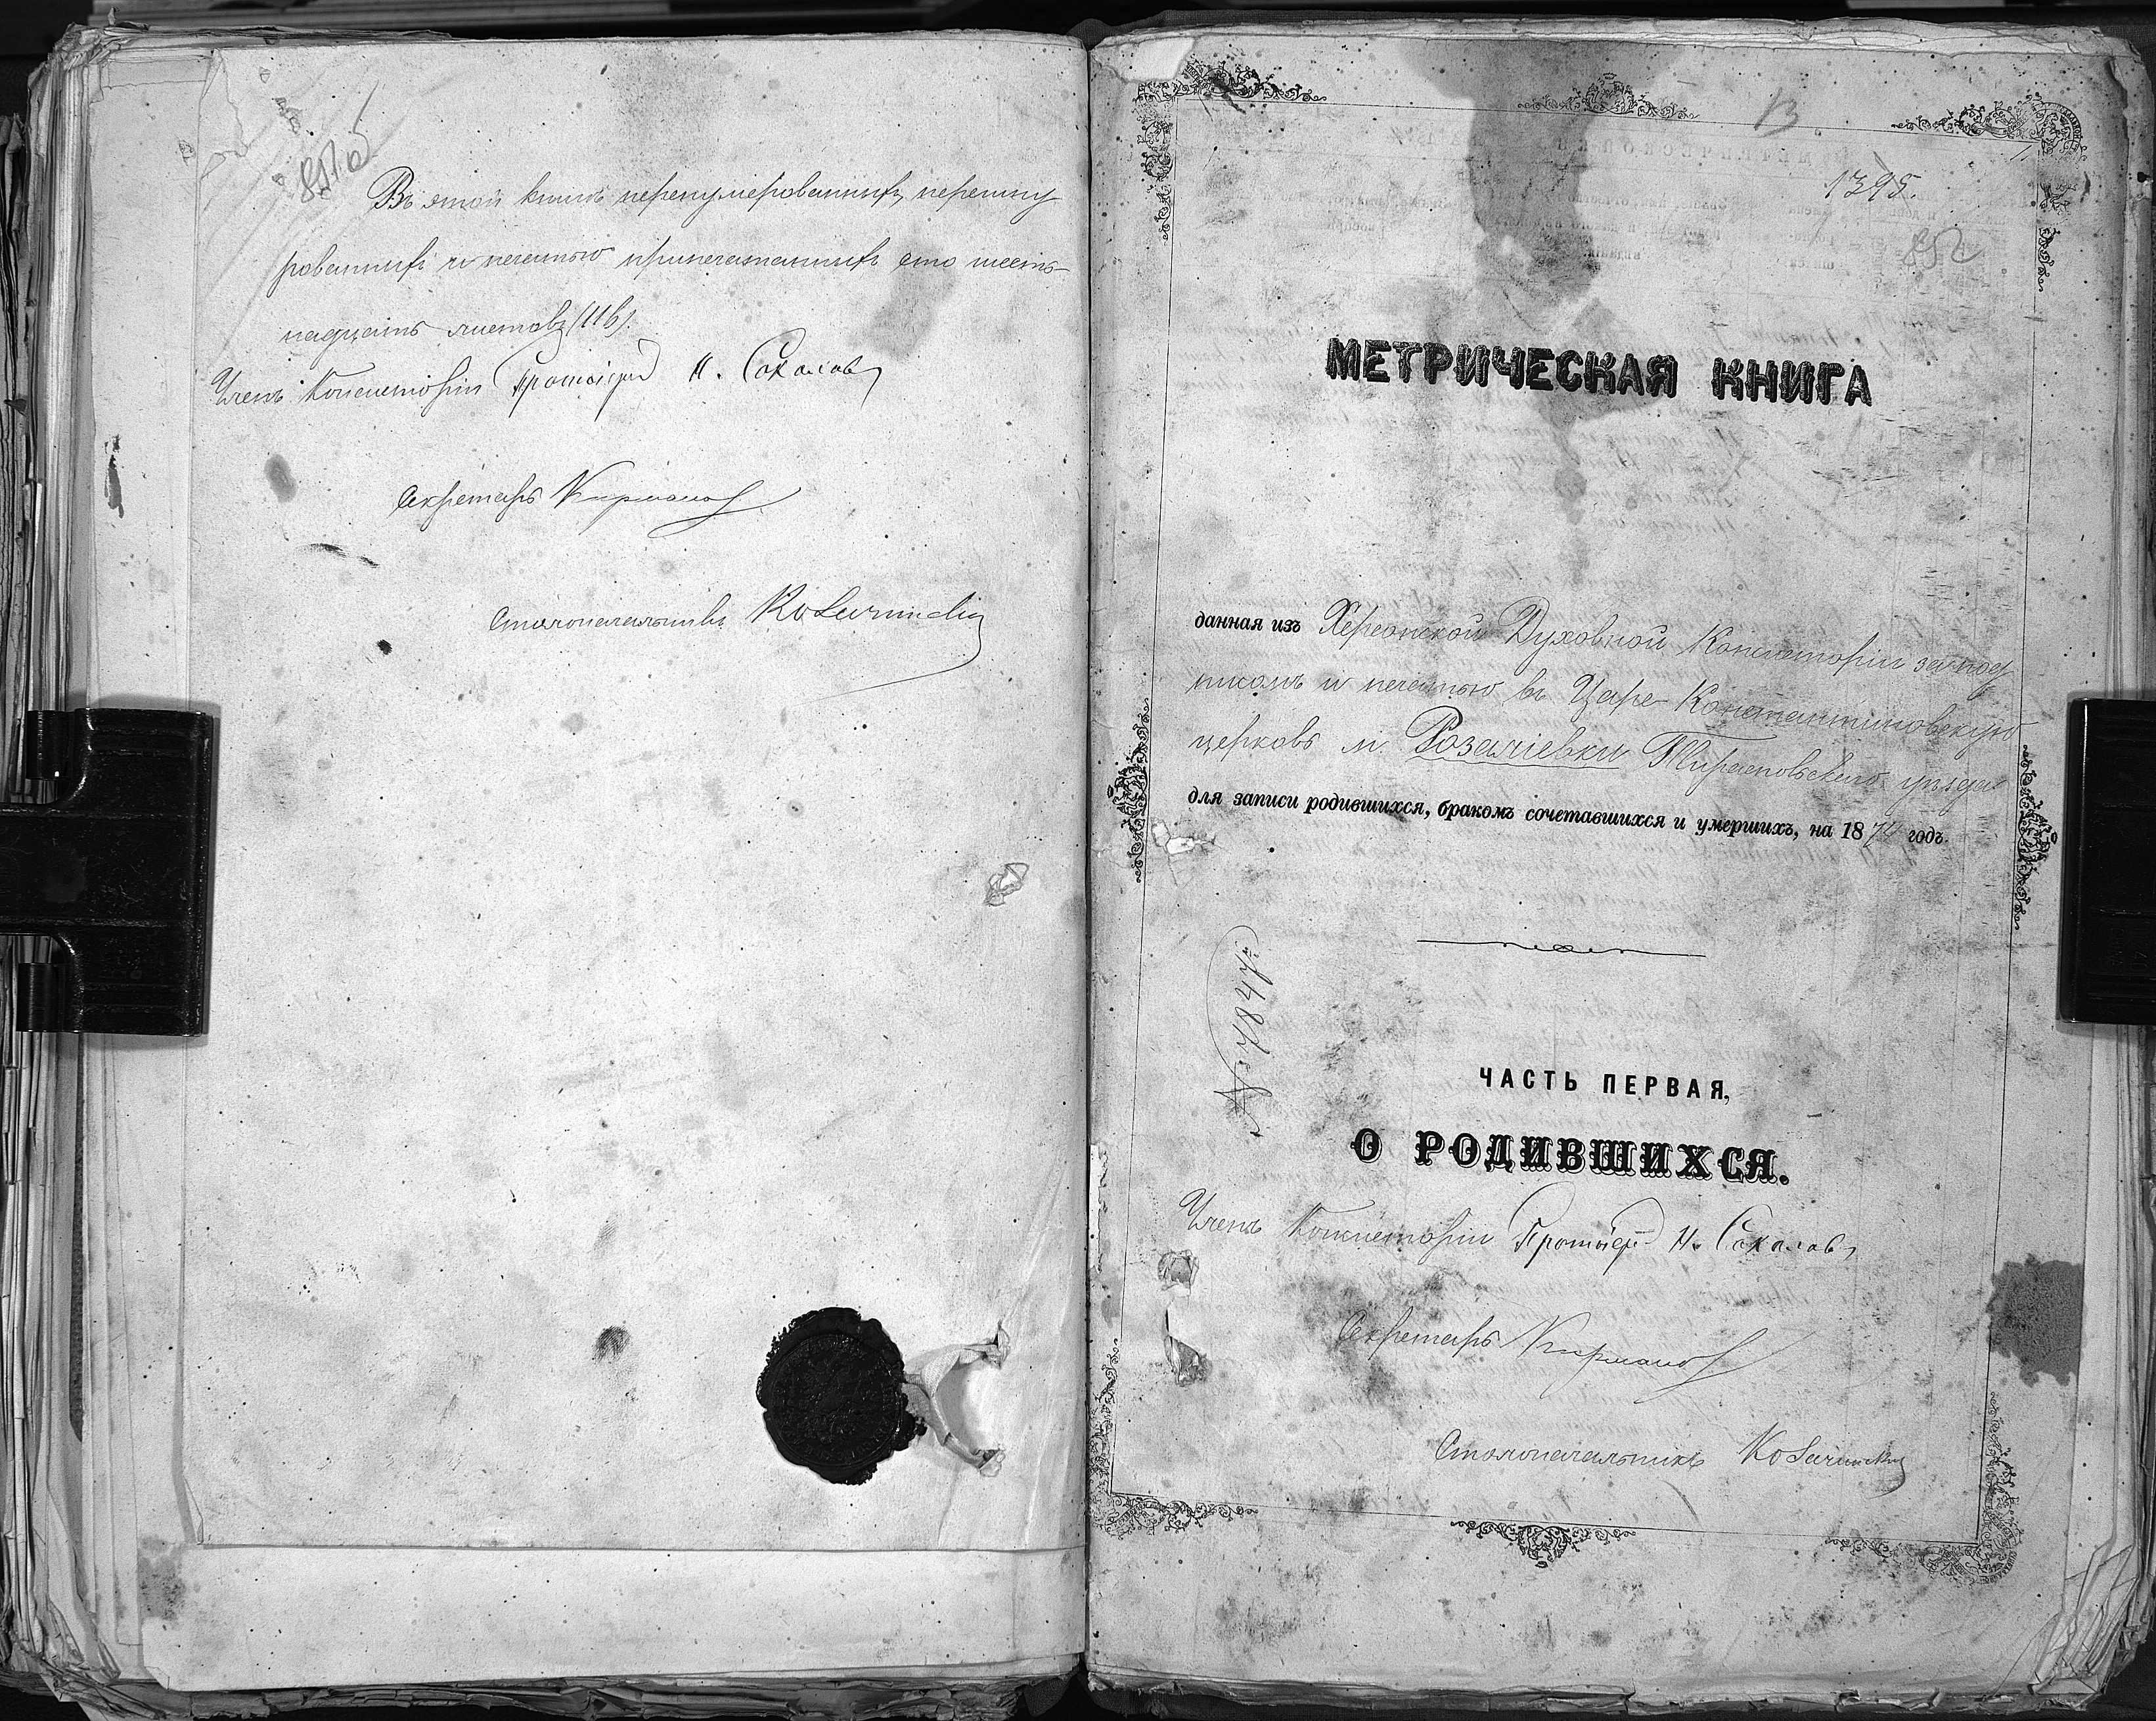 Въ этой книгѣ перенумерованныхъ, перешну-
рованныхъ и печатью припечатанныхъ сто шест-
надцать листовъ (116).
Членъ Консисторіи Протоіерей Н. Соколовъ
Секретарь
Столоначальникъ
13
1395.
852
МЕТРИЧЕСКАЯ КНИГА
данная изъ Херсонской Духовной Консисторіи за под-
писомъ и печатью въ Царе-Константиновскую
церковь м. Розаліевки Тираспольскаго уѣзда
для записи родившихся, бракомъ сочетавшихся и умершихъ, на 1874 годъ.
№ 7847
ЧАСТЬ ПЕРВАЯ,
О РОДИВШИХСЯ.
Членъ Консисторіи Протоіерей Н. Соколовъ
Секретарь
Столоначальникъ